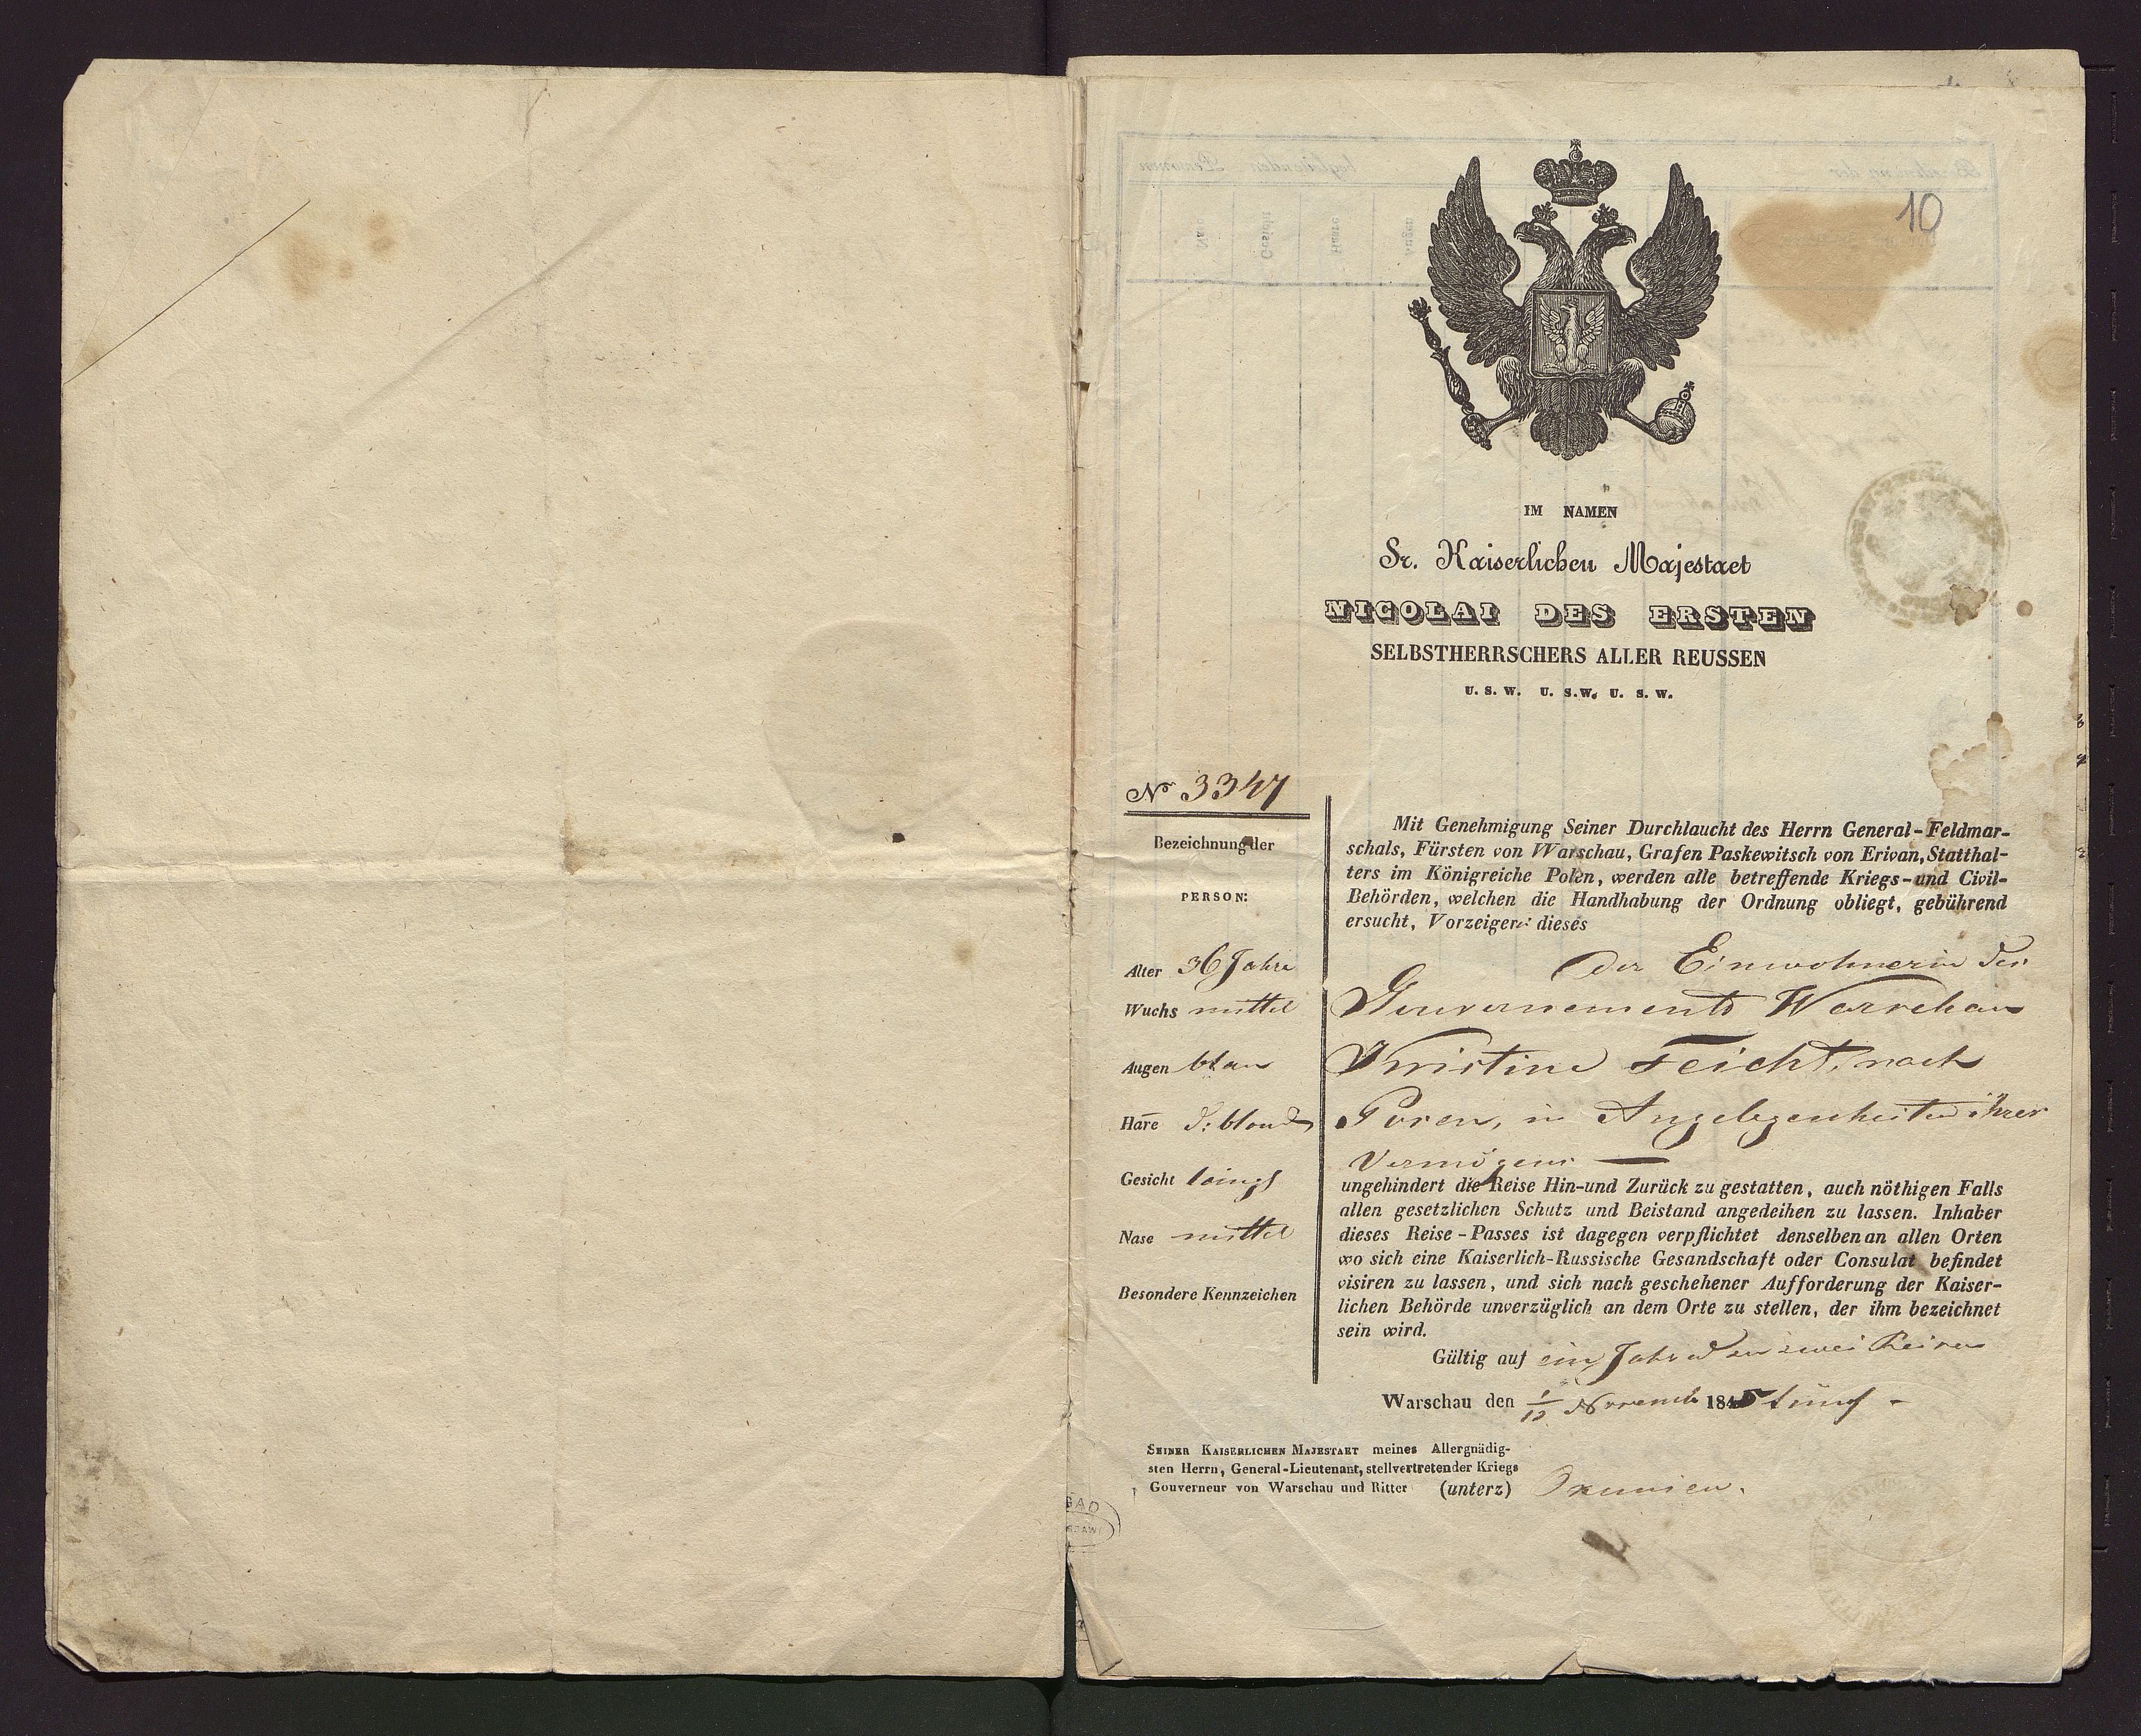 10
IM NAMEN
Sr. Kaiserlichen Majestaet
NICOLAI DES ERSTEN
SELBSTHERRSCHERS ALLER REUSSEN
U. S. W. U. S. W. U. S. W.
No 3347
Bezeichnung der
PERSON:
Alter 36 Jahre
Wuchs mittel
Augen blau
Hare d: blond
Gesicht längl
Nase mittel
Besondere Kennzeichen
Mit Genehmigung Seiner Durchlaucht des Herrn General-Feldmar-
schals, Fürsten von Warschau, Grafen Paskewitsch von Erivan, Statthal-
ters im Königreiche Polen, werden alle betreffende Kriegs-und Civil-
Behörden, welchen die Handhabung der Ordnung obliegt, gebührend
ersucht, Vorzeigern dieses
der Einwohnerin des
Gouvernements Warschau
Kristine Feicht, nach
Posen, in Angelegenheiten ihres
Vermögens
ungehindert die Reise Hin-und Zurück zu gestatten, auch nöthigen Falls
allen gesetzlichen Schutz und Beistand angedeihen zu lassen. Inhaber
dieses Reise-Passes ist dagegen verpflichtet denselben an allen Orten
wo sich eine Kaiserlich-Russische Gesandschaft oder Consulat befindet
visiren zu lassen, und sich nach geschehener Aufforderung der Kaiser-
lichen Behörde unverzüglich an dem Orte zu stellen, der ihm bezeichnet
sein wird.
Gültig auf ein Jahr zwei Reisen
Warschau den Novemb 1845 fünf
SEINER KAISERLICHEN MAJESTAET meines Allergnädig-
sten Herrn, General-Lieutenant, stellvertretender Kriegs
Gouverneur von Warschau und Ritter (unterz)